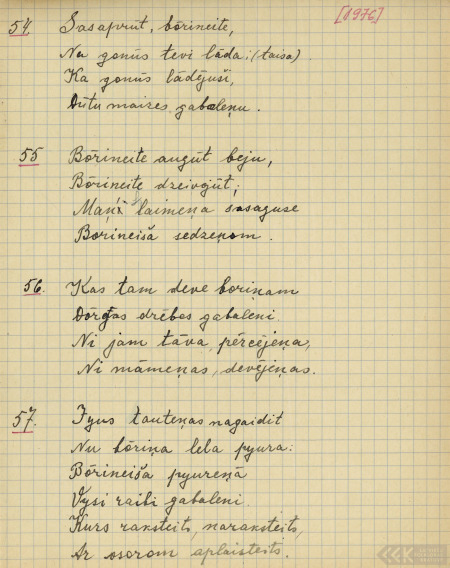 [1976]
54 Sasaprūt, bōrineite,
Nu gonūs tevi lāda; (taisa)
Ka gonūs lādējuši,
Dūtu maizes gabaleņu.
55 Bōrineite augūt beju,
Bōrineite dzeivojūt;
Maņi laimeņa sasaguse
Borineišā sedzeņom.
56. Kas tam deve boriņam
Dorgas drēbes gabaleni
Ni jam tāva, pērcējeņa,
Ni māmeņas, devējeņas.
57. Jyus tauteņas nagaidit
Nu bōriņa lela pyura:
Bōrineiša pyureņā
Vysi raibi gabaleni.
Kurs raksteits, naraksteits,
Ar osorom aplaisteits.